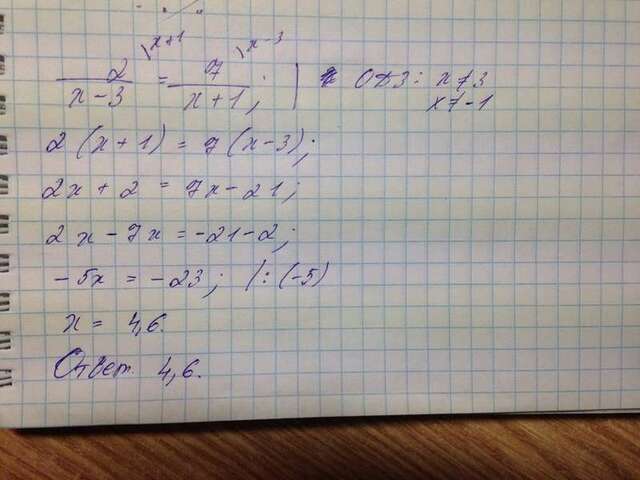 2/(x-3) \x+1 = 7/(x+1) \x-3; | ОДЗ: x≠3
x≠-1
2(x+1) = 7(x-3);
2x + 2 = 7x - 21;
2x - 7x = -21 - 2;
-5x = -23; |: (-5)
x = 4,6.
Ответ. 4,6.